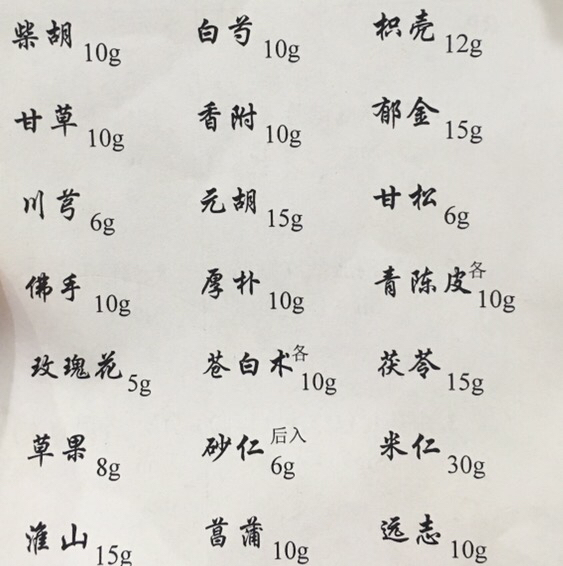 柴胡 10g 白芍 10g 枳壳 12g
甘草 10g 香附 10g 郁金 15g
川芎 6g 元胡 15g 甘松 6g
佛手 10g 厚朴 10g 青陈皮各 10g
玫瑰花 5g 苍白术各 10g 茯苓 15g
草果 8g 砂仁后入 6g 米仁 30g
淮山 15g 菖蒲 10g 远志 10g